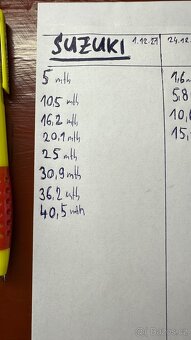 SUZUKI 1.12.21 24.12.
5 mth 1,6
10,5 mth 5,8
16,2 mth 10,
20,1 mth 15,
25 mth
30,9 mth
36,2 mth
40,5 mth
Bazos.cz